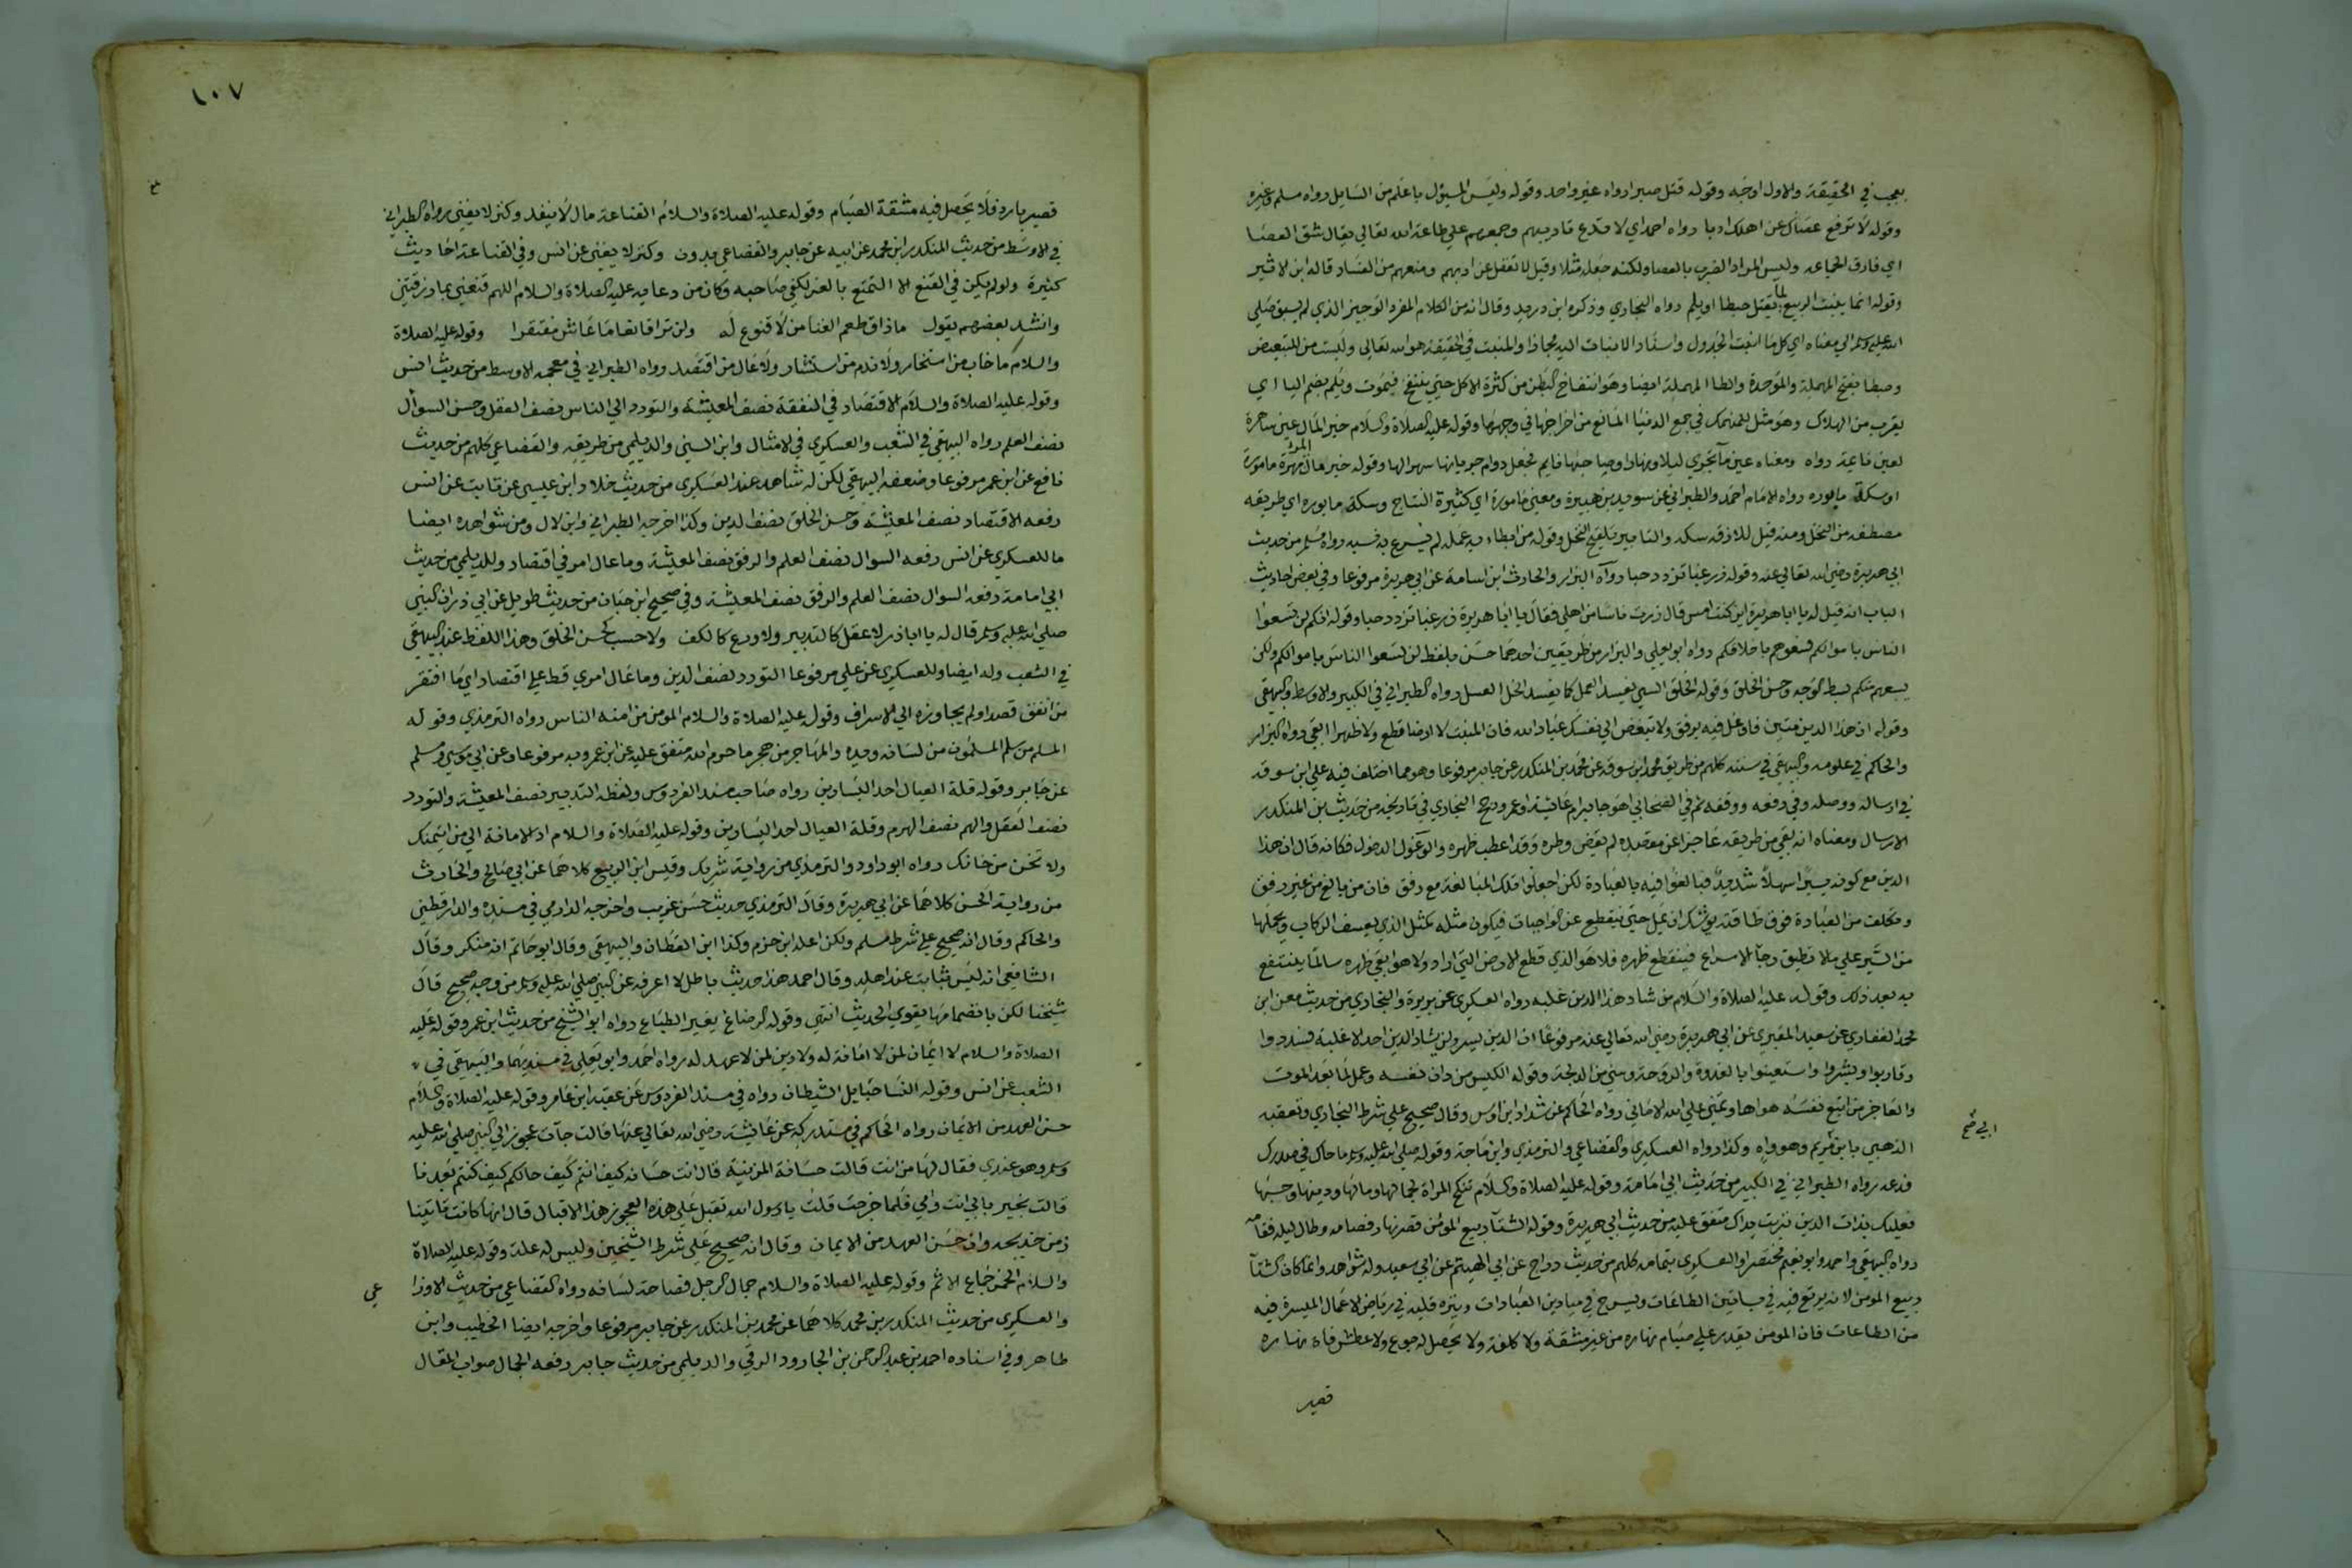 بعجب في الحقيقة والاول اوجَه وقوله قتل صبرا رواه غير واحد وقوله وليس المسؤل باعلم من السَايل رواه مسلم وغيره
وقوله لا ترفع عصَاك عن اهلك ادبا رواه احمد اي لا تدع تاديبهم وجمعهم على طاعة الله تعالى يقال شق العصَا
اي فارق الجماعه وليس المراد الضرب بالعصا ولكنه جعله مثلا وقيل لا تغفل عن ادبهم ومنعهم من الفسَاد قاله ابن الاثير
وقوله انما ينبت الربيع لما يقتل حبطا او يلم رواه البخاري وذكره ابن دريد وقال انه من الكلام المفرد الوجيز الذي لم يسبق صَلى
الله عليه وسلم الى معناه اي كل ما انبت الجدول واسنَاد الانبات اليه مجازا والمنبت في الحقيقة هو الله تعالى وليست من للتبعيض
وحبطا بفتح المهملة والموحدة والطا المهملة ايضا وهَو انتفاخ البَطن من كثرة الاكل حتي ينتفخ فيمُوت ويُلم بضم اليا اي
يقرب من الهلاك وهوَ مثل للمنهمك في جمع الدنيَا المانع من اخراجهَا في وجهها وقوله عليه الصلاة والسلام خير المال عين ساهرة
لعين نايمة رواه ومعناه عين ماء تجري ليلا ونهارا وصاحبهَا نايم فجعل دوام جريانها سهرا لها وقوله خير مال المرء مهرة مامورة
او سكة مابوره رواه الامَام احمَد والطبراني عن سويد بن هبيرة ومعني مَامورة اي كثيرة النتاج وسكة مابوره اي طريقه
مصطفه من النخل ومنه قيل للازقه سكه والتابير تلقيح النخل وقوله من ابطاء به عمله لم يسرع به نسبه رواه مُسلم من حديث
ابي هريرة رضي الله تعالى عنه وقوله زر غبا تزدد حبا رواه البزار والحارث ابن اسامة عن ابي هريرة مرفوعا وفي بعض احاديث
الباب انه قيل له يا ابا هريرة اين كنت امس قال زرت ناسا من اهلي فقال يا ابا هريرة زر غبا تزدد حبا وقوله انكم لن تسَعوا
الناس باموالكم فسعوهم باخلاقكم رواه ابو يعلى والبزار من طريقين احدهما حسَن بلفظ لن تسَعوا الناسَ باموالكم ولكن
يسعهم منكم بسط الوجه وحسن الخلق وقوله الخلق السيي يفسد العمل كما يفسد الخل العسل رواه الطبراني في الكبير والاوسط والبيهقى
وقوله ان هذا الدين متين فاوغل فيه برفق ولا تبغض الي نفسَك عبَادة الله فان المنبت لا ارضا قطع ولا ظهرا ابقى رواه البزار
والحاكم في علومه والبيهقي في سننه كلهم من طريق محمد ابن سوقه عن محمد بن المنكدر عن جابر مرفوعا وهو مما اختلف فيه على ابن سوقه
في ارساله ووصله وفي رفعه ووقفه ثم في الصحابي اهو جابر ام عَائشة او عمر ورجح البخاري في تاريخه من حَديث ابن المنكدر
الارسال ومعناه انه بقي من طريقه عَاجزا عن مقصده لم يقَض وطره وَقد اعطب ظهره والوغول الدخول فكانه قال ان هذا
الدين مع كونه يسيرا سهلاً شديدٌ فبالغوا فيه بالعبَادة لكن اجعلوا تلك المبَالغة مع رفق فان من بالغ من غير رفق
وتكلف من العبَادة فوق طاقته يوشك ان يمل حتي ينقطع عن الواجبات فيكون مثله كمثل الذي يعسف الركاب ويحملها
من السَير علي مالا تطيق رجآ الاسراع فينقطع ظهره فلا هَو الذي قطع الارض التي اراد ولا هو ابقي ظهره سالماً ينتفع
به بعد ذلك وقوله عليه الصلاة والسَلام من شاد هذا الدين غلبه رواه العسكري عن بريرة والبخاري من حديث معن ابن
محمد الغفاري عن سعيد المقبري عن ابي هريرة رضي الله تعالى عنه مرفوعًا ان الدين يسر ولن يشاد الدين احد الا غلبه فسددوا
وقاربوا وبشروا واستعينوا بالغدوة والروحة وشي من الدلجة وقوله الكيس من دان نفسه وعمل لما بعد الموت
والعَاجز من اتبع نفسَه هواها وتمني على الله الاماني رواه الحَاكم عن شداد ابن اوس وقال صحيح على شرط البخاري وتعقبه
الذهبي بابن مريم وهو واه وكذا رواه العسكري والقضاعي والترمذي وابن مَاجة وقوله صلى الله عليه وسلم ما حاك في صدرك
ابي صح
فدعه رواه الطبراني في الكبير من حديث ابي امَامة وقوله عليه الصلاة والسَلام تنكح المراة لجمالها ومالها ودينها وحسَبها
فعليك بذات الدين تربت يداك متفق عليه من حديث ابي هريرة وقوله الشتآ ربيع المؤمن قصر نهاره فصامه وطال ليله فقامه
رواه البيهقي واحمد وابو نعيم مختصرا والعسكري بتمامه كلهم من حديث دراج عن ابي الهيثم عن ابي سعيد وله شواهد وانما كان الشتآ
ربيع المومن لانه يرتع فيه في بساتين الطاعَات ويسرح في ميادين العبَادات وينزه قلبه في ريَاض الاعمَال الميسرة فيه
من الطاعات فان المومن يقدر علي صيَام نهاره من غير مشقة ولا كلفة ولا يحَصل له جوع ولا عطش فان نهاره
قصير
١٠٧
قصير بارد فلا يَحصل فيه مشقة الصيَام وقوله عليه الصلاة والسلام القناعة مال لاينفد وكنز لا يفني رواه الطبراني
في الاوسَط من حديث المنكدر ابن محمد عن ابيه عن جابر والقضاعي بدون وكنز لا يفني عن انس وفي القناعة احاديث
كثيرة ولو لم يكن في القنع الا التمتع بالعز لكفي صَاحبه وكان من دعايه عليه الصلاة والسلام اللهم قنعني بما رزقتني
وانشد بعضهم يقول ماذاق طعم الغنا من لا قنوع له ولن ترا قانعا مَا عَاش مفتقرا وقوله عليه الصلاة
والسلام ما خاب من استخار ولا ندم من استشار ولا عَال من اقتصَد رواه الطبراني في معجمه الاوسط من حديث انس
وقوله عليه الصلاة والسلام الاقتصَاد في النفقة نصف المعيشة والتودد الي الناس نصف العقل وحسن السوال
نصف العلم رواه البيهقي في الشعب والعسكري في الامثال وابن السني والديلمي من طريقه والقضاعي كلهم من حديث
نافع عن ابن عمر مرفوعا وضعفه البيهقي لكن له شاهد عند العسكري من حديث خلاد ابن عيسى عن ثابت عن انس
رفعه الاقتصاد نصف المعيشة وحسن الخلق نصف الدين وكذا اخرجه الطبراني وابن لال ومن شواهده ايضا
ما للعسكري عن انس رفعه السوال نصف العلم والرفق نصف المعيشة وما عال امرؤ في اقتصاد وللديلمي من حديث
ابي امامة رفعه السوال نصف العلم والرفق نصف المعيشة وفي صحيح ابن حبَان من حديث طويل عن ابي ذر ان النبي
صلى الله عليه وسلم قال له يا ابا ذر لا عقل كالتدبير ولا ورع كالكف ولا حسب كحسن الخلق وهذا اللفظ عند البيهقي
في الشعب وله ايضا وللعسكري عن علي مرفوعا التودد نصف الدين وما عال امري قط علي اقتصاد اي ما افتقر
من انفق قصدا ولم يجاوزه الي الاسراف وقوله عليه الصلاة والسلام المومن من امنه الناس رواه الترمذي وقوله
المسلم من سلم المسلمون من لسَانه ويده والمهَاجر من هجر ما حرم الله متفق عليه عن ابن عمرو به مرفوعا وعن ابي موسي ومسلم
عن جَابر وقوله قلة العيال احد اليسَارين رواه صَاحب مسند الفردوس ولفظه التدبير نصف المعيشة والتودد
نصف العقل والهم نصف الهرم وقلة العيال احد اليسَارين وقوله عليه الصَلاة والسلام اد الامانة الي من ائتمنك
ولا تخن من خانك رواه ابو داود والترمذي من رواية شريك وقيس ابن الربيع كلاهما عن ابي صَالح والحَارث
من رواية الحسن كلاهمَا عن ابي هريرة وقال الترمذي حديث حسَن غريب واخرجه الدارمي في مسنده والدارقطني
والحاكم وقال انه صحيح علي شرط مسلم ولكن اعله ابن حزم وكذا ابن القطان والبيهقي وقال ابو حاتم انه منكر وقال
الشافعي انه ليَس بثابت عند اهله وقال احمد هذا حديث باطل لا اعرفه عن النبي صلى الله عليه وسلم من وجه صحيح قال
شيخنا لكن بانضمامهَا يقوي الحديث انتهى وقوله الرضاع يغير الطبَاع رواه ابو الشيخ من حديث ابن عمر وقوله عَليه
الصلاة والسلام لا ايمَان لمن لا امَانة له ولا دين لمن لا عهد له رواه احمَد وابو يَعلي في مسنديهمَا والبَيهقي في
الشعب عن انس وقوله النسَا حبَايل الشيطان رواه في مسند الفردوس عَن عقبه ابن عَامر وقوله عليه الصلاة والسلام
حسن العهد من الايمَان رواه الحَاكم في مستدركه عن عَائشة رضي الله تعالى عنهَا قالت جآت عجوز الي النبي صلى الله عليه
وسلم وهو عندي فقال لهَا من انت قالت حسَانة المزنية قال انت حسَانه كيف انتم كَيف حالكم كيف كنتم بعدنا
قالت بخير بابي انت وامي فلما خرجت قلتُ يا رسول الله تقبل عَلي هذه العجوز هذا الاقبال قال انها كانت تاتينا
زمن خديجه وان حسَن العهد من الايمان وقال انه صحيح عَلي شرط الشيخين وليس له علة وقوله عليه الصلاة
والسلام الخمر جمَاع الاثم وقوله عليه الصلاة والسلام جمال الرجل فصاحة لسَانه رواه القضاعي من حديث الاوزا
عي
والعسكري من حديث المنكدر بن محمد كلاهمَا عن محمد بن المنكدر عن جابر مرفوعا واخرجه ايضا الخطيب وابن
طاهر وفي اسناده احمد بن عبد الرحمن بن الجارود الرقي والديلمي من حديث جابر رفعه الجمال صواب المقال